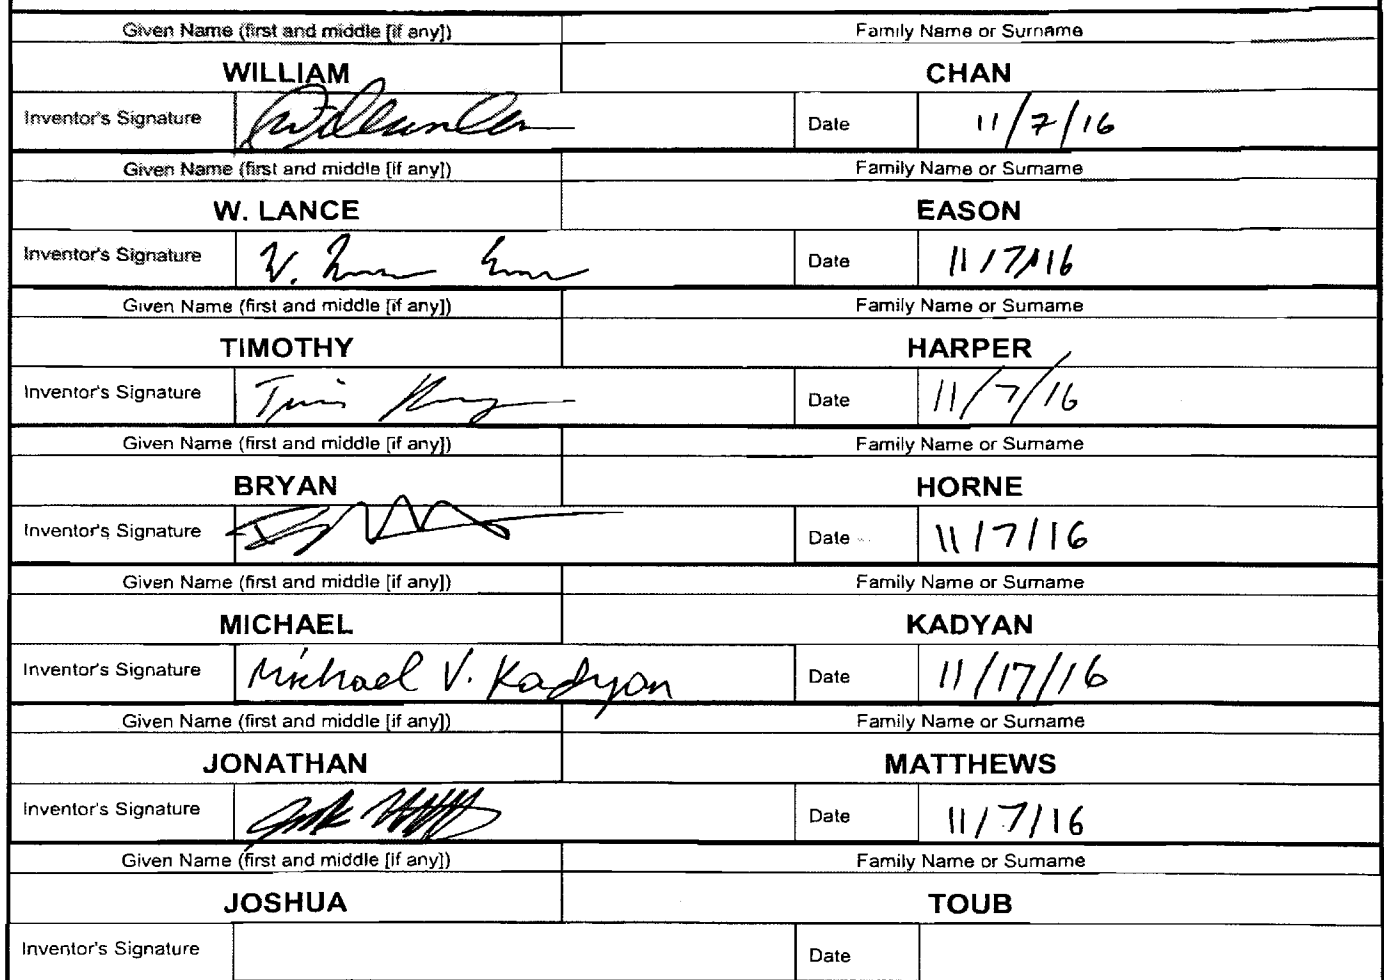 Given Name (first and middle [if any]) Family Name or Surname
WILLIAM CHAN
Inventor's Signature Date 11/7/16
Given Name (first and middle [if any]) Family Name or Surname
W. LANCE EASON
Inventor's Signature W. Date 11/7/16
Given Name (first and middle [if any]) Family Name or Surname
TIMOTHY HARPER
Inventor's Signature Tim Date 11/7/16
Given Name (first and middle [if any]) Family Name or Surname
BRYAN HORNE
Inventor's Signature Date 11/7/16
Given Name (first and middle [if any]) Family Name or Surname
MICHAEL KADYAN
Inventor's Signature Michael V. Kadyan Date 11/17/16
Given Name (first and middle [if any]) Family Name or Surname
JONATHAN MATTHEWS
Inventor's Signature Date 11/7/16
Given Name (first and middle [if any]) Family Name or Surname
JOSHUA TOUB
Inventor's Signature Date